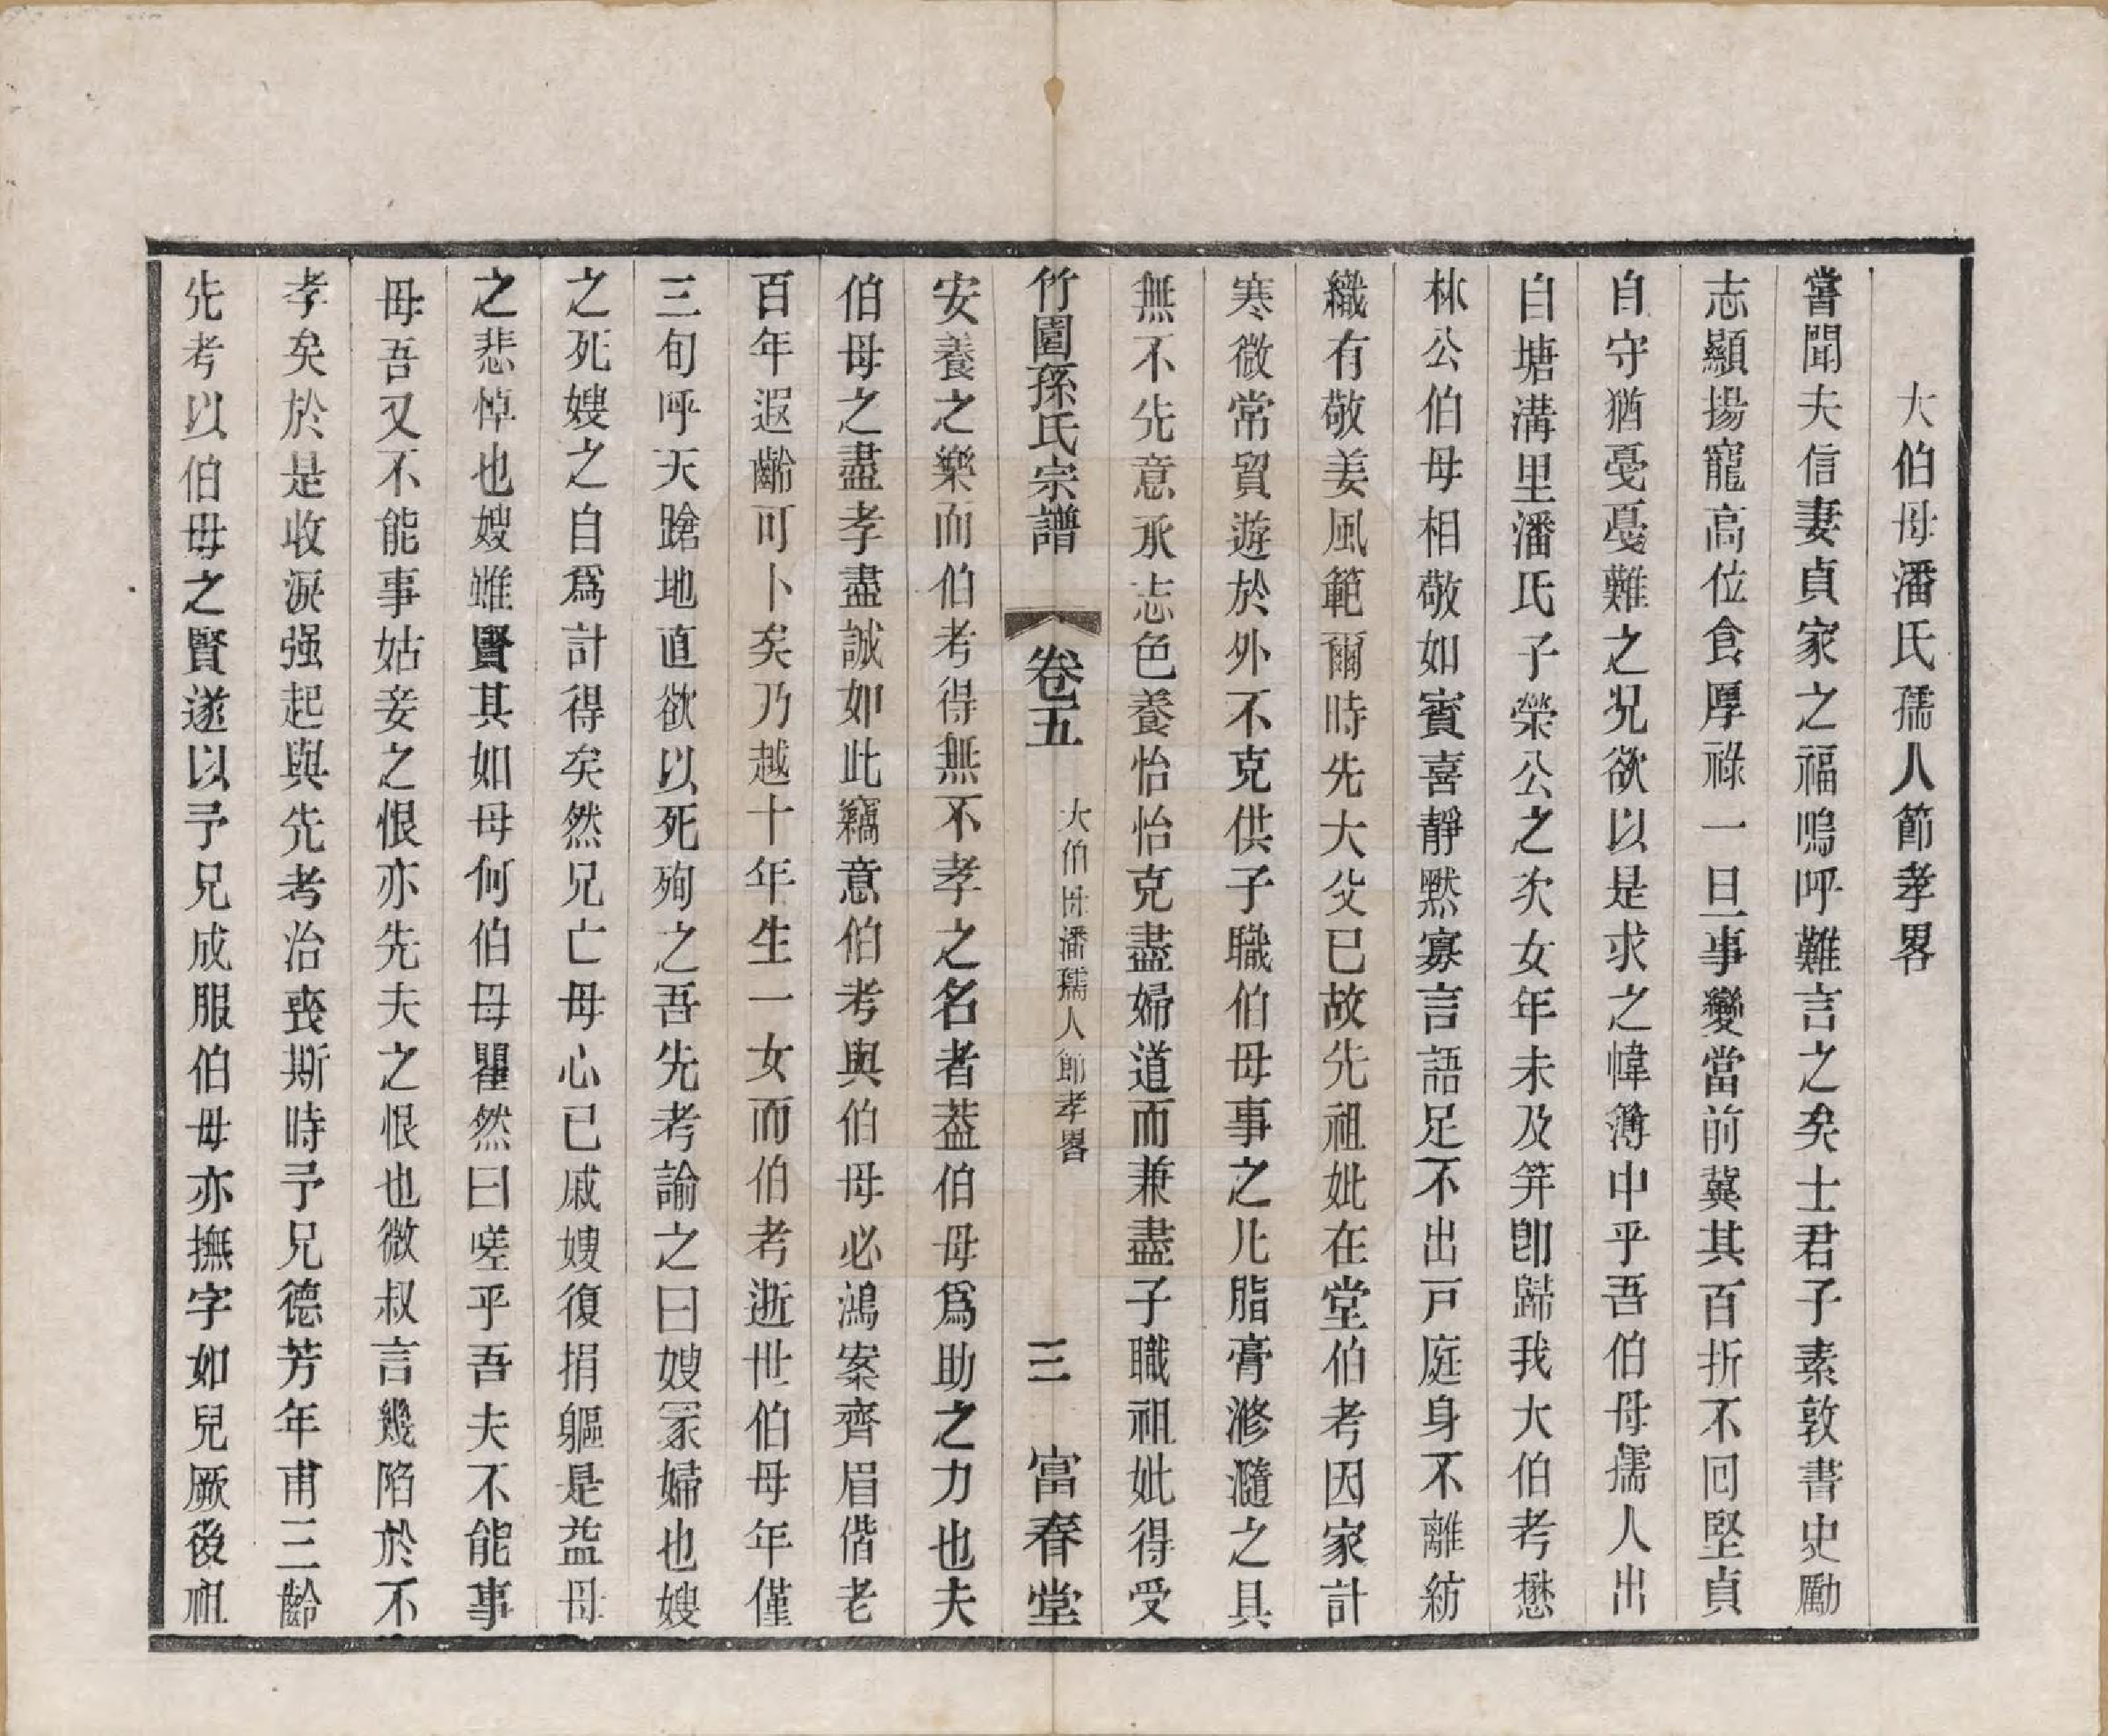 大伯母潘氏孺人節孝畧
嘗聞夫信妻貞家之福嗚呼難言之矣士君子素敦書史勵
志顯揚寵高位食厚祿一旦事變當前冀其百折不回堅貞
自守猶戞戞難之况欲以是求之幃簿中乎吾伯母孺人出
白塘溝里潘氏子榮公之次女年未及笄卽歸我大伯考懋
林公伯母相敬如賓喜靜默寡言語足不出戸庭身不離紡
織有敬姜風範爾時先大父已故先祖妣在堂伯考因家計
寒微常貿遊於外不克供子職伯母事之凡脂膏滫瀡之具
無不先意承志色養怡怡克盡婦道而兼盡子職祖妣得受
竹園孫氏宗譜 卷五 大伯母潘孺人節孝畧 三 富春堂
安養之樂而伯考得無不孝之名者葢伯母爲助之力也夫
伯母之盡孝盡誠如此竊意伯考與伯母必鴻案齊眉偕老
百年遐齡可卜矣乃越十年生一女而伯考逝世伯母年僅
三旬呼天蹌地直欲以死殉之吾先考諭之曰嫂冢婦也嫂
之死嫂之自爲計得矣然兄亡母心已戚嫂復捐軀是益母
之悲悼也嫂雖賢其如母何伯母瞿然曰嗟乎吾夫不能事
母吾又不能事姑妾之恨亦先夫之恨也微叔言幾陷於不
孝矣於是收淚强起與先考治喪斯時予兄德芳年甫三齡
先考以伯母之賢遂以予兄成服伯母亦撫字如兒厥後祖